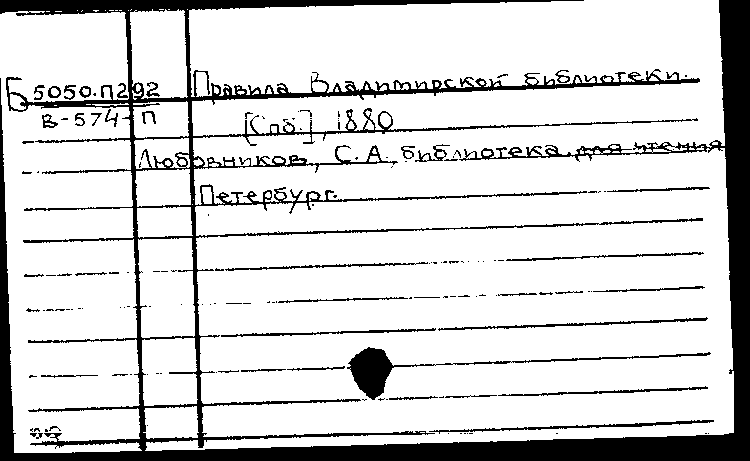 Б 5050.П292 Правила Владимирской библиотеки.
В-574-П
[Спб.], 1880
Любовников, С.А., библиотека для чтения
Петербург.